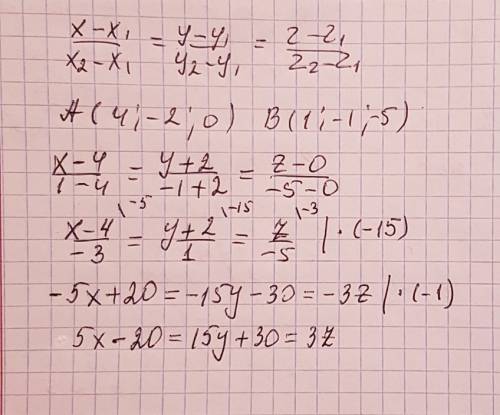 x-x₁/x₂-x₁ = y-y₁/y₂-y₁ = z-z₁/z₂-z₁
A(4;-2;0) B(1;-1;-5)
x-4/1-4 = y+2/-1+2 = z-0/-5-0
x-4/-3 \-5 = y+2/1 \-15 = z/-5 \-3 | ·(-15)
-5x+20=-15y-30=-3z | ·(-1)
5x-20=15y+30=3z